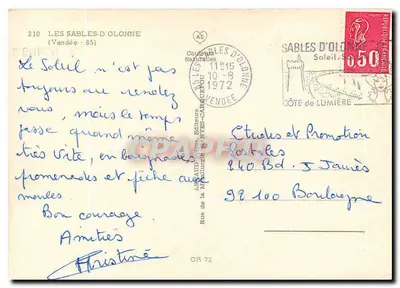 210 LES SABLES-D'OLONNE
(Vendée - 85)
Couleurs
Naturelles
LES SABLES D'OLONNE
11H15
10-8
1972
VENDEE
SABLES D'OLONNE
Soleil
CÔTE de LUMIÈRE
0,50
Le Soleil n'est pas
toujours au rendez
vous, mais le temps
passe quand même
très vite, en baignades
promenades et pêche aux
moules.
Bon courage
Amitiés
Christine
Etudes et Promotion
Sociales
240 Bd. J Jaurès
92100 Boulogne
Rue de la Métallurgie
CR 72